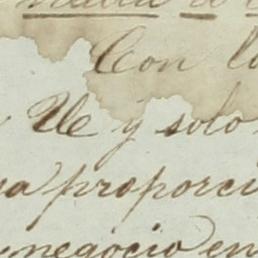 Con l
Ve y solo
a proporci
negocio en